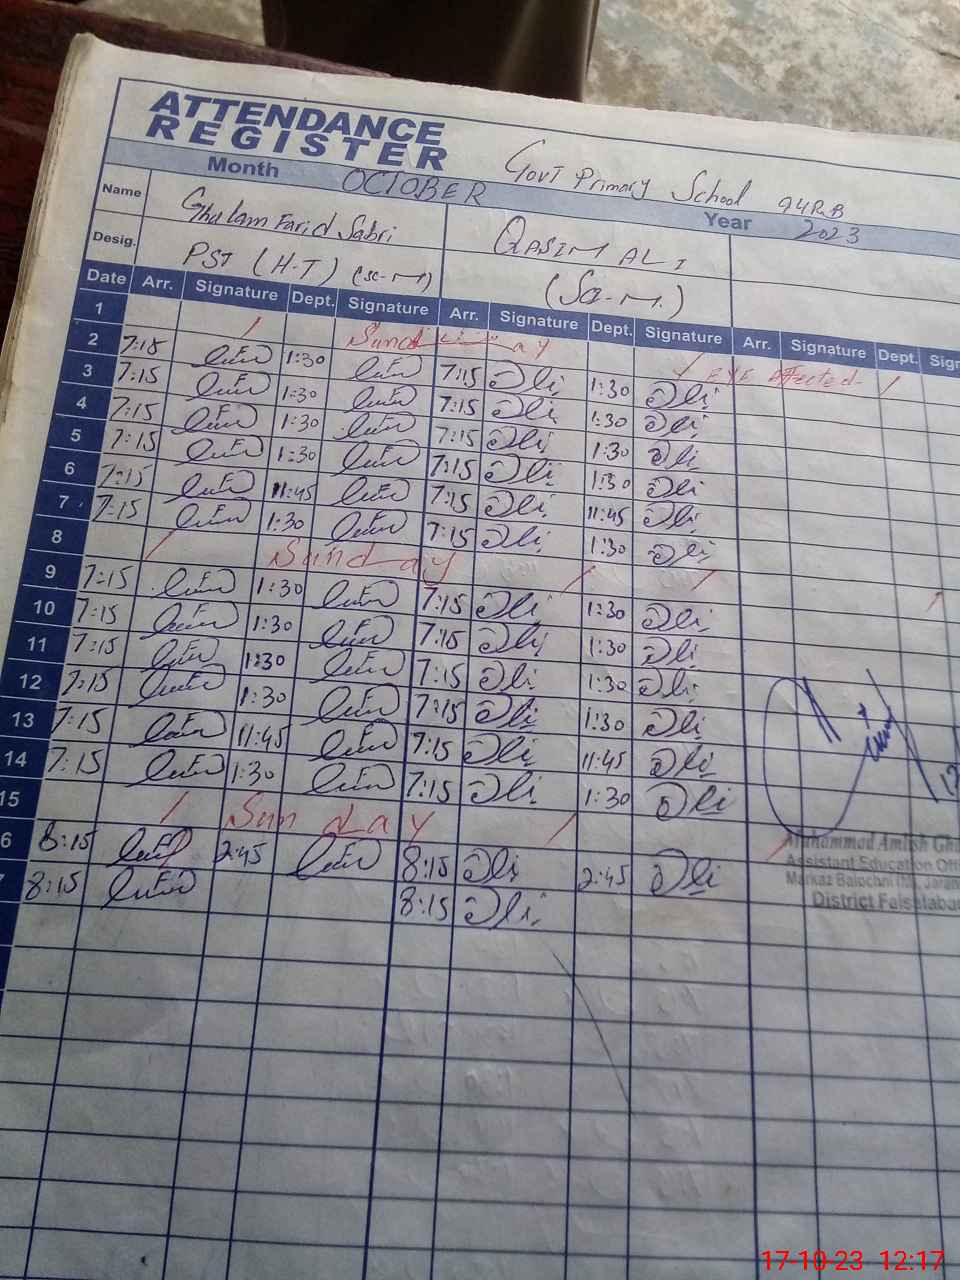 ATTENDANCE
REGISTER
Govt Primary School 94RB
Month OCTOBER Year 2023
Name Ghulam Farid Sabri QASIM ALI
Desig. PST (H-T) (SC-M) (SC-M.)
Date Arr. Signature Dept. Signature Arr. Signature Dept. Signature Arr. Signature Dept. Sign
1 Sunday
2 7:15 1:30 7:15 Ali 1:30 Ali
3 7:15 1:30 7:15 Ali 1:30 Ali
4 7:15 1:30 7:15 Ali 1:30 Ali
5 7:15 1:30 7:15 Ali 1:30 Ali
6 7:15 11:45 7:15 Ali 11:45 Ali
7 7:15 1:30 7:15 Ali 1:30 Ali
8 Sunday
9 7:15 1:30 7:15 Ali 1:30 Ali
10 7:15 1:30 7:15 Ali 1:30 Ali
11 7:15 1:30 7:15 Ali 1:30 Ali
12 7:15 1:30 7:15 Ali 1:30 Ali
13 7:15 11:45 7:15 Ali 11:45 Ali
14 7:15 1:30 7:15 Ali 1:30 Ali
15 Sunday
6 8:15 2:45 8:15 Ali 2:45 Ali
7 8:15 8:15 Ali
Muhammad Amish Gha
Assistant Education Offi
Markaz Balochni
District Faisalabad
17-10-23 12:17